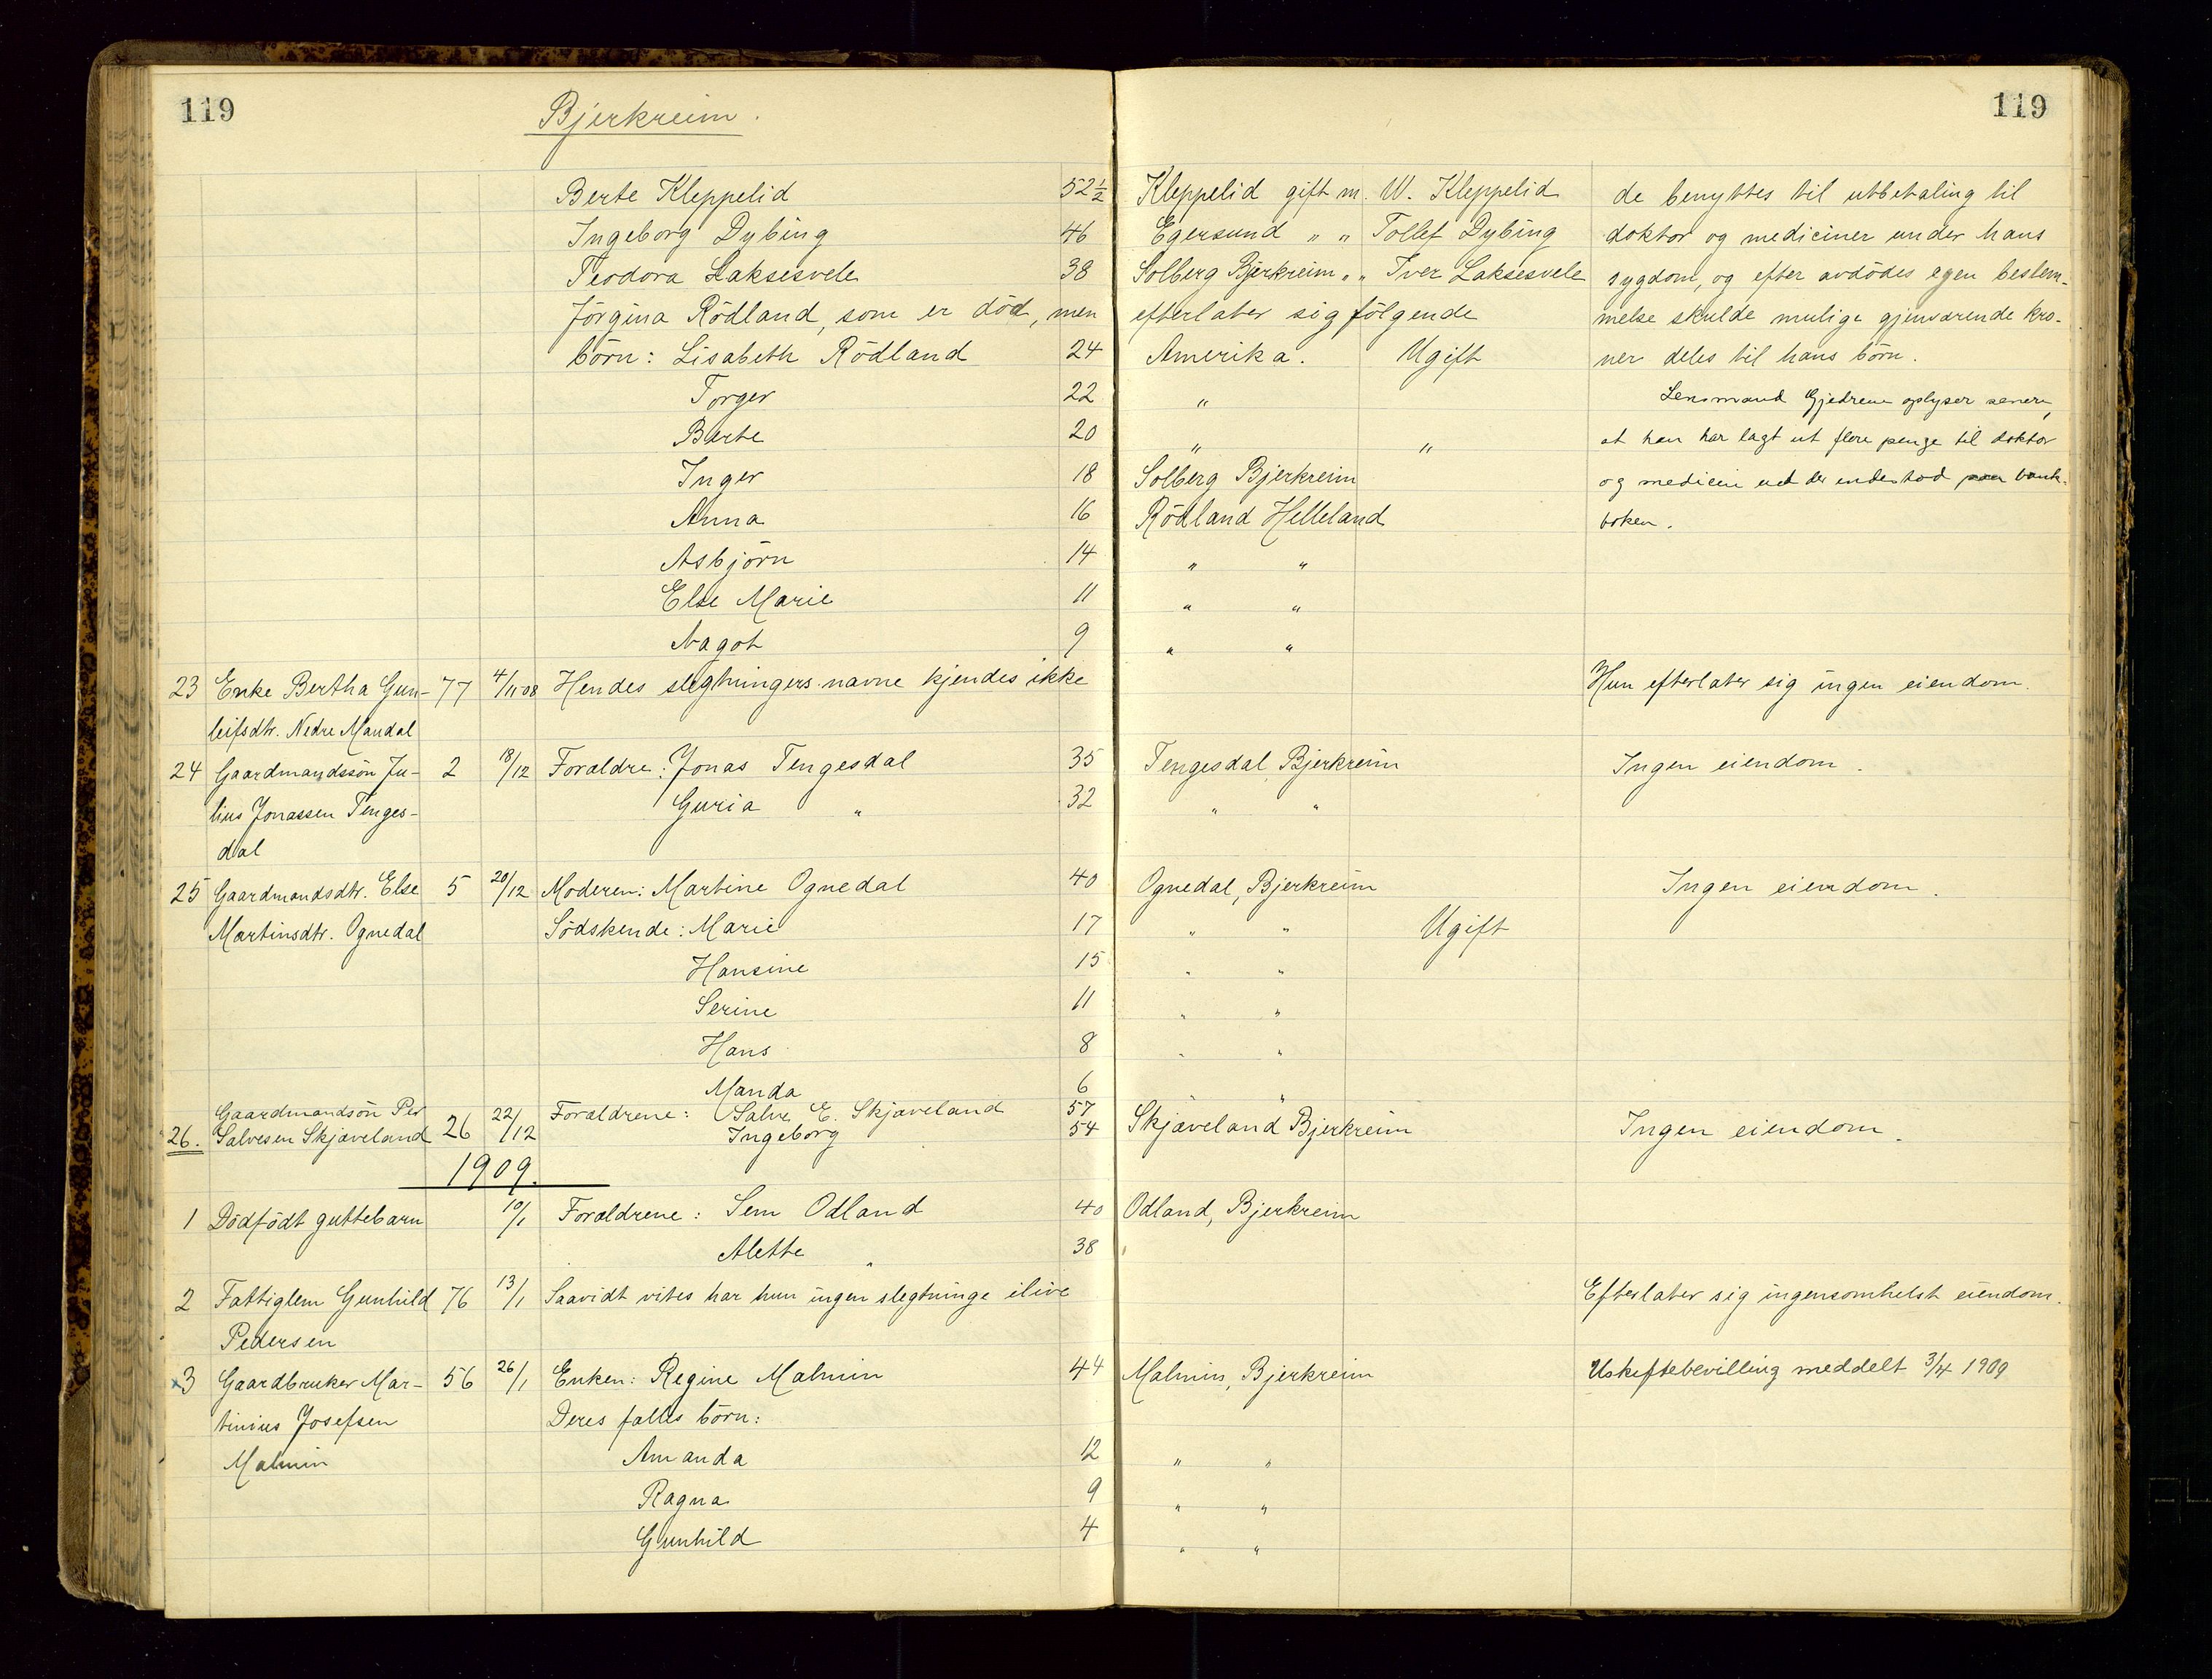 119 Bjerkreim. 119
Berte Kleppelid 52½ Kleppelid gift m. W. Kleppelid de benyttes til utbetaling til
Ingeborg Dybing 46 Egersund " " Tollef Dybing doktor og mediciner under hans
Teodora Laksesvele 38 Solberg Bjerkreim " " Iver Laksesvele sygdom, og efter avdödes egen bestem-
Jörgina Rödland, som er död, men efterlater sig fölgende melse skulde mulige gjenværende kro-
börn: Lisabeth Rödland 24 Amerika. Ugift ner deles til hans börn.
Torger 22 " Lensmand Gjedrem oplyser senere,
Berte 20 " " at han har lagt ut flere penge til doktor
Inger 18 Solberg Bjerkreim og medicin end der endestod paa bank-
Anna 16 Rödland Helleland boken.
Asbjörn 14 " "
Else Marie 11 " "
Aagot 9 " "
23 Enke Bertha Gun- 77 4/11 08 Hendes slegtningers navne kjendes ikke Hun efterlater sig ingen eiendom.
leifsdtr. Nedre Maudal
24 Gaardmandssön Ju- 2 18/12 Foræeldre: Jonas Tengesdal 35 Tengesdal, Bjerkreim Ingen eiendom.
lius Jonassen Tenges- Guria " 32 " "
dal
25 Gaardmandsdtr. Else 5 20/12 Moderen: Martine Ognedal 40 Ognedal, Bjerkreim Ingen eiendom.
Martinsdtr. Ognedal Södskende: Marie 17 " " Ugift
Hansine 15 " "
Serine 11 " "
Hans 8 " "
Manda 6 " "
Gaardmandsön Per 22/12 Forældrene: Salve E. Skjæveland 57
26. Salvesen Skjæveland 26 Ingeborg 54 Skjæveland Bjerkreim Ingen eiendom.
1909.
1 Dödfödt guttebarn 10/1 Forældrene: Sem Odland 40 Odland, Bjerkreim
Alette " 38 "
2 Fattiglem Gunhild 76 13/1 Saavidt vites har hun ingen slegtninge ilive Efterlater sig ingensomhelst eiendom.
Pedersen
x3 Gaardbruker Mar- 56 26/1 Enken: Regine Malmin 44 Malmin, Bjerkreim Uskiftebevilling meddelt 3/4 1909
tinius Josefsen Deres fælles börn:
Malmin Amanda 12 " "
Ragna 9 " "
Gunhild 4 " "